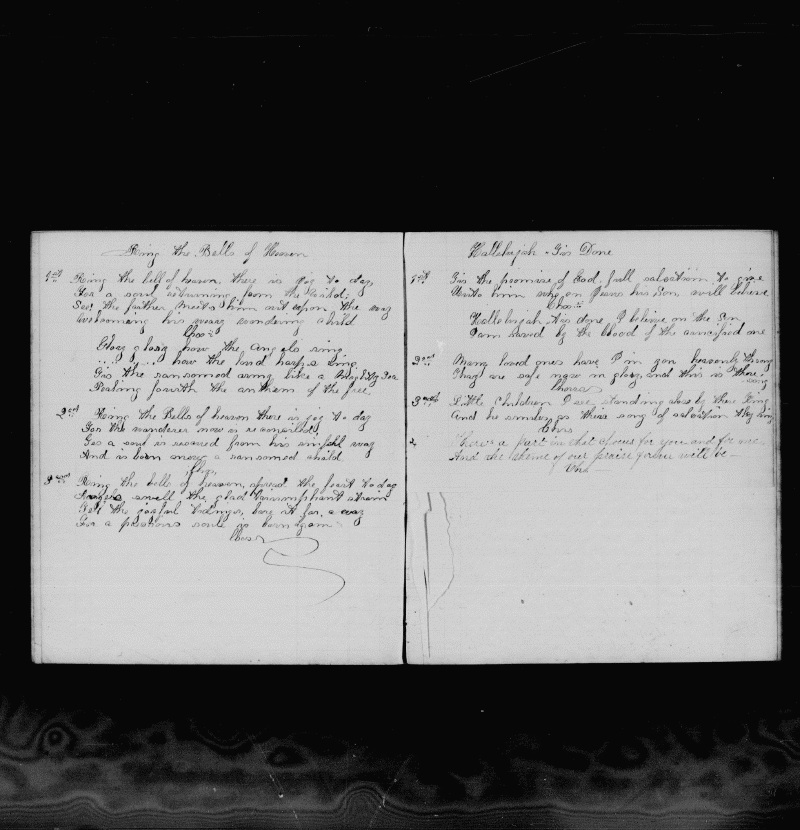 Ring the Bells of Heaven
1st Ring the bell of heaven, there is joy to day,
For a soul returning from the
See! the father meets him out upon the way
his weary wandering child
Chos
Glory glory how the Angels sing
how the loud harps ring
Tis the ransomed army like a Mighty Sea
Pealing fourth the anthem of the free
2nd Ring the Bells of heaven there is joy to day
For the wanderer now is reconciled,
Yes a soul is rescued from his sinful way
And is born anew a ransomed child
Cho
3rd Ring the bells of heaven, spread the feast to day
Angels swell the glad triumphant strain
Tell the joyful tidings, bare it far a way
For a precious soul is born again
Chos
Hallelujah Tis Done
1st Tis the promise of God, full salvation to give
Unto him who on Jesus his Son, will believe
Chos
Hallelujah tis done, I believe on the Son
I am saved by the blood of the crucified one
2nd Many loved ones have I in yon heavenly throng
They are safe now in glory, and this is there
song
Chorus
3 Little children I see standing close by there King
And he smiles as their song of salvation they sing
Chors
There's a part in that chorus for you and for me.
And the theme of our praise forever will be—
Cho